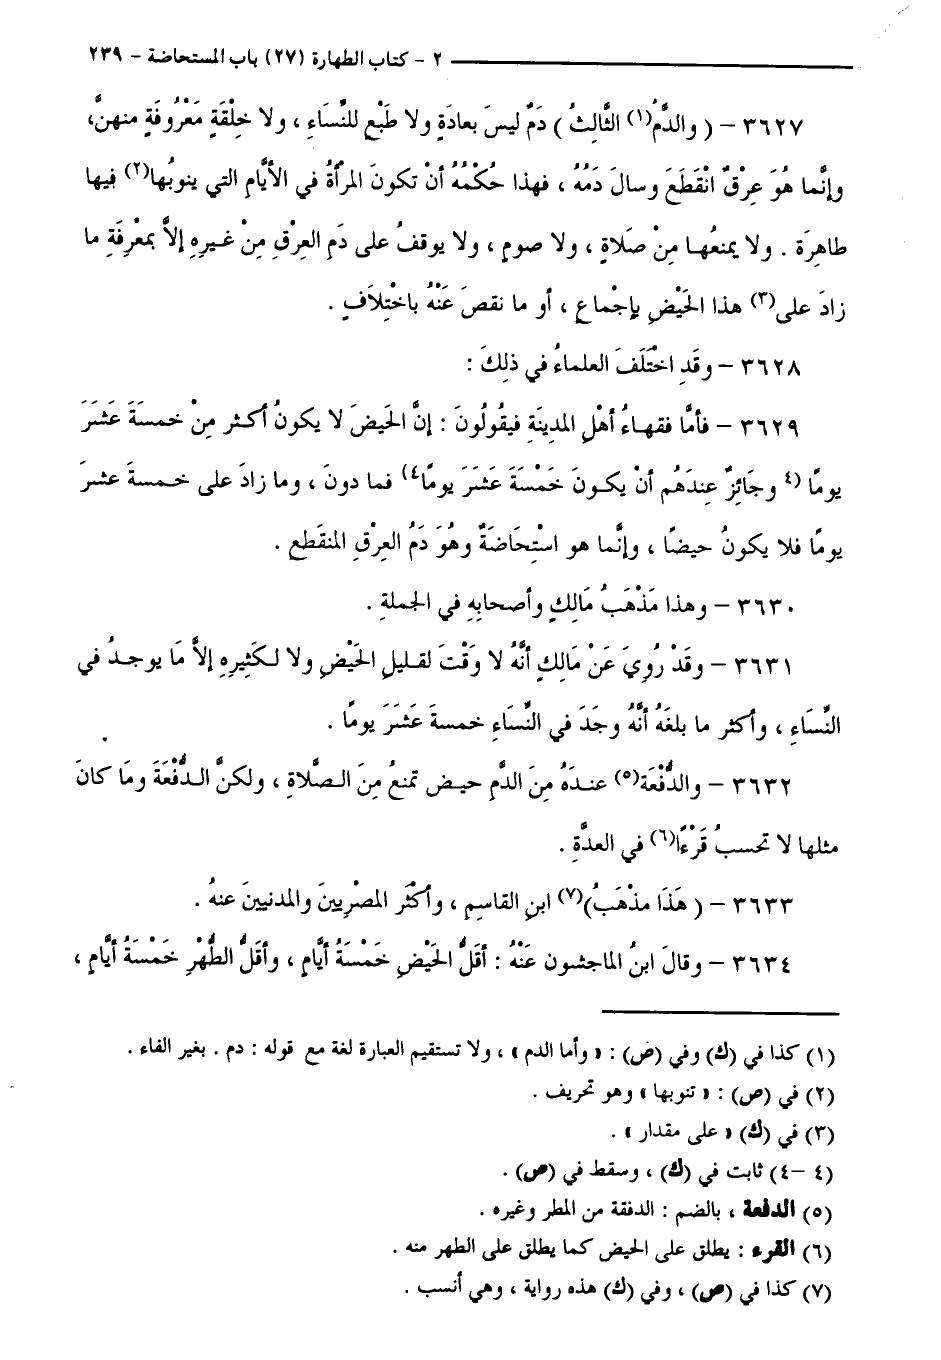 ٢ - كتاب الطهارة (٢٧) باب المستحاضة - ٢٣٩
٣٦٢٧ - ( والدَّمُ(١) الثَّالِثُ ) دَمٌ ليسَ بعادَةٍ ولا طَبْعٍ للنِّسَاءِ ، ولا خِلْقَةٍ مَعْرُوفَةٍ منهنَّ،
وإنَّما هُوَ عِرْقٌ انْقَطَعَ وسالَ دَمُهُ ، فهذا حُكْمُهُ أنْ تكونَ المرأةُ في الأيَّامِ التي ينوبُها(٢) فيها
طاهِرَة . ولا يمنعُها مِنْ صَلَاةٍ ، ولا صومٍ ، ولا يوقفُ على دَمِ العِرْقِ مِنْ غيرِهِ إلاَّ بمعْرِفَةِ ما
زادَ على(٣) هذا الحَيْضِ بإجْماعٍ ، أو ما نقصَ عَنْهُ باخْتِلَافٍ .
٣٦٢٨ - وقَدِ اخْتَلَفَ العلماءُ في ذلِكَ :
٣٦٢٩ - فأمَّا فقهاءُ أهْلِ المدِينَةِ فيقُولُونَ : إنَّ الحَيضَ لا يكونُ أكثر مِنْ خمسةَ عَشَرَ
يومًا (٤ وجَائِزٌ عِندَهُم أنْ يكونَ خَمْسَةَ عَشَرَ يومًا٤) فما دونَ ، وما زادَ على خمسةَ عشرَ
يومًا فلا يكونُ حيضًا ، وإنَّما هو استْحَاضَةٌ وهُوَ دَمُ العِرْقِ المنقَطع .
٣٦٣٠ - وهذا مَذْهَبُ مَالِكٍ وأصحابِهِ في الجملةِ .
٣٦٣١ - وقَدْ رُوِيَ عَنْ مَالِكٍ أنَّهُ لا وَقْتَ لقليلِ الحَيْضِ ولا لكَثِيرِهِ إلاَّ مَا يوجدُ في
النِّسَاءِ ، وأكثر ما بلغَهُ أنَّهُ وجَدَ في النِّسَاءِ خمسةَ عَشَرَ يومًا .
٣٦٣٢ - والدُّفْعَة(٥) عندَهُ مِنَ الدَّمِ حيض تمنعُ مِنَ الصَّلاةِ ، ولكنَّ الدُّفْعَةَ ومَا كانَ
مثلها لا تحسبُ قَرْءًا(٦) في العدَّةِ .
٣٦٣٣ - ( هَذَا مذْهَبُ)(٧) ابنِ القاسِمِ ، وأكْثَر المصْرِيينَ والمدنيينَ عنهُ .
٣٦٣٤ - وقالَ ابنُ الماجشون عَنْهُ : أقَلُّ الحَيْضِ خَمْسَةُ أيَّامٍ ، وأقَلُّ الطُّهْرِ خَمْسَةُ أيَّامٍ ،
(١) كذا في (ك) وفي (ص) : « وأما الدم » ، ولا تستقيم العبارة لغة مع قوله : دم . بغير الفاء .
(٢) في (ص) : « تنوبها » وهو تحريف .
(٣) في (ك) « على مقدار » .
(٤ -٤) ثابت في (ك) ، وسقط في (ص) .
(٥) الدفعة ، بالضم : الدفقة من المطر وغيره .
(٦) القرء : يطلق على الحيض كما يطلق على الطهر منه .
(٧) كذا في (ص) ، وفي (ك) هذه رواية ، وهي أنسب .